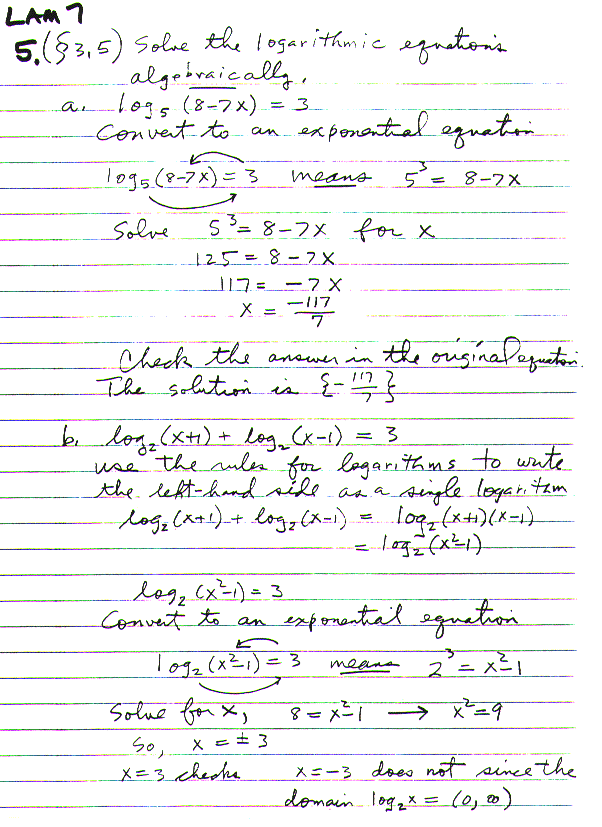 LAM 7
5. (§3.5) Solve the logarithmic equations
algebraically.
a. log₅ (8-7x) = 3
Convert to an exponential equation
log₅ (8-7x) = 3 means 5³ = 8-7x
Solve 5³ = 8-7x for x
125 = 8-7x
117 = -7x
x = -117/7
Check the answer in the original equation.
The solution is {-117/7}
b. log₂(x+1) + log₂(x-1) = 3
use the rules for logarithms to write
the left-hand side as a single logarithm
log₂(x+1) + log₂(x-1) = log₂(x+1)(x-1)
= log₂(x²-1)
log₂(x²-1) = 3
Convert to an exponential equation
log₂(x²-1) = 3 means 2³ = x²-1
Solve for x, 8 = x²-1 → x²=9
So, x = ±3
x=3 checks x=-3 does not since the
domain log₂x = (0, ∞)